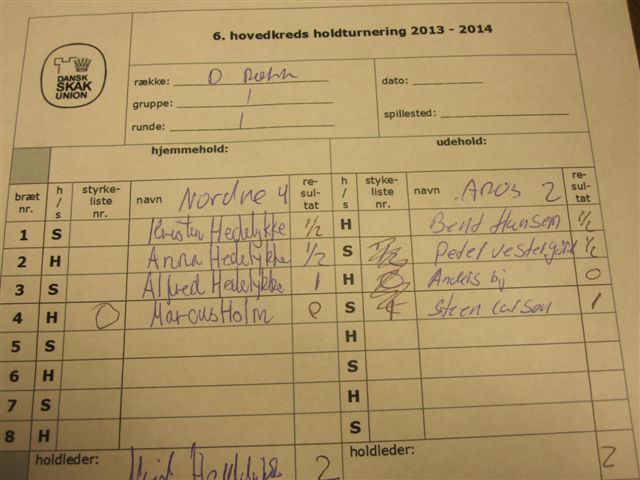 6. hovedkreds holdturnering 2013 - 2014
DANSK
SKAK
UNION
række: D
dato:
gruppe: 1
spillested:
runde: 1
hjemmehold: udehold:
bræt nr. h / s styrke-liste nr. navn Nordre 4 re-sul-tat h / s styrke-liste nr. navn Aros 2 re-sul-tat
1 S Hedelykke 1/2 H Bent Hansen 1/2
2 H Anna Hedelykke 1/2 S 1/2 Peter Vestergård 1/2
3 S Alfred Hedelykke 1 H 0 Anders bj 0
4 H 0 Marcus Holm 0 S Steen Larsen 1
5 S H
6 H S
7 S H
8 H S
holdleder: 2 2